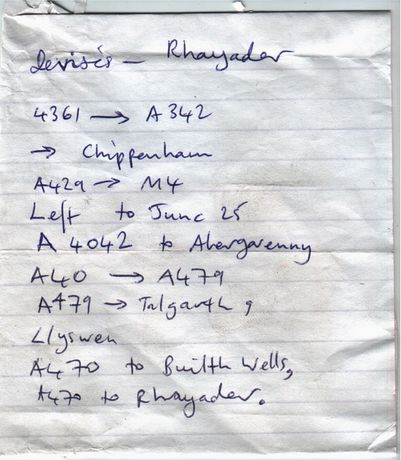 Devises – Rhayader
4361 → A342
→ Chippenham
A429 → M4
Left to Junc 25
A 4042 to Abergavenny
A40 → A479
A479 → Talgarth,
Llyswen
A470 to Builth Wells,
A470 to Rhayader.